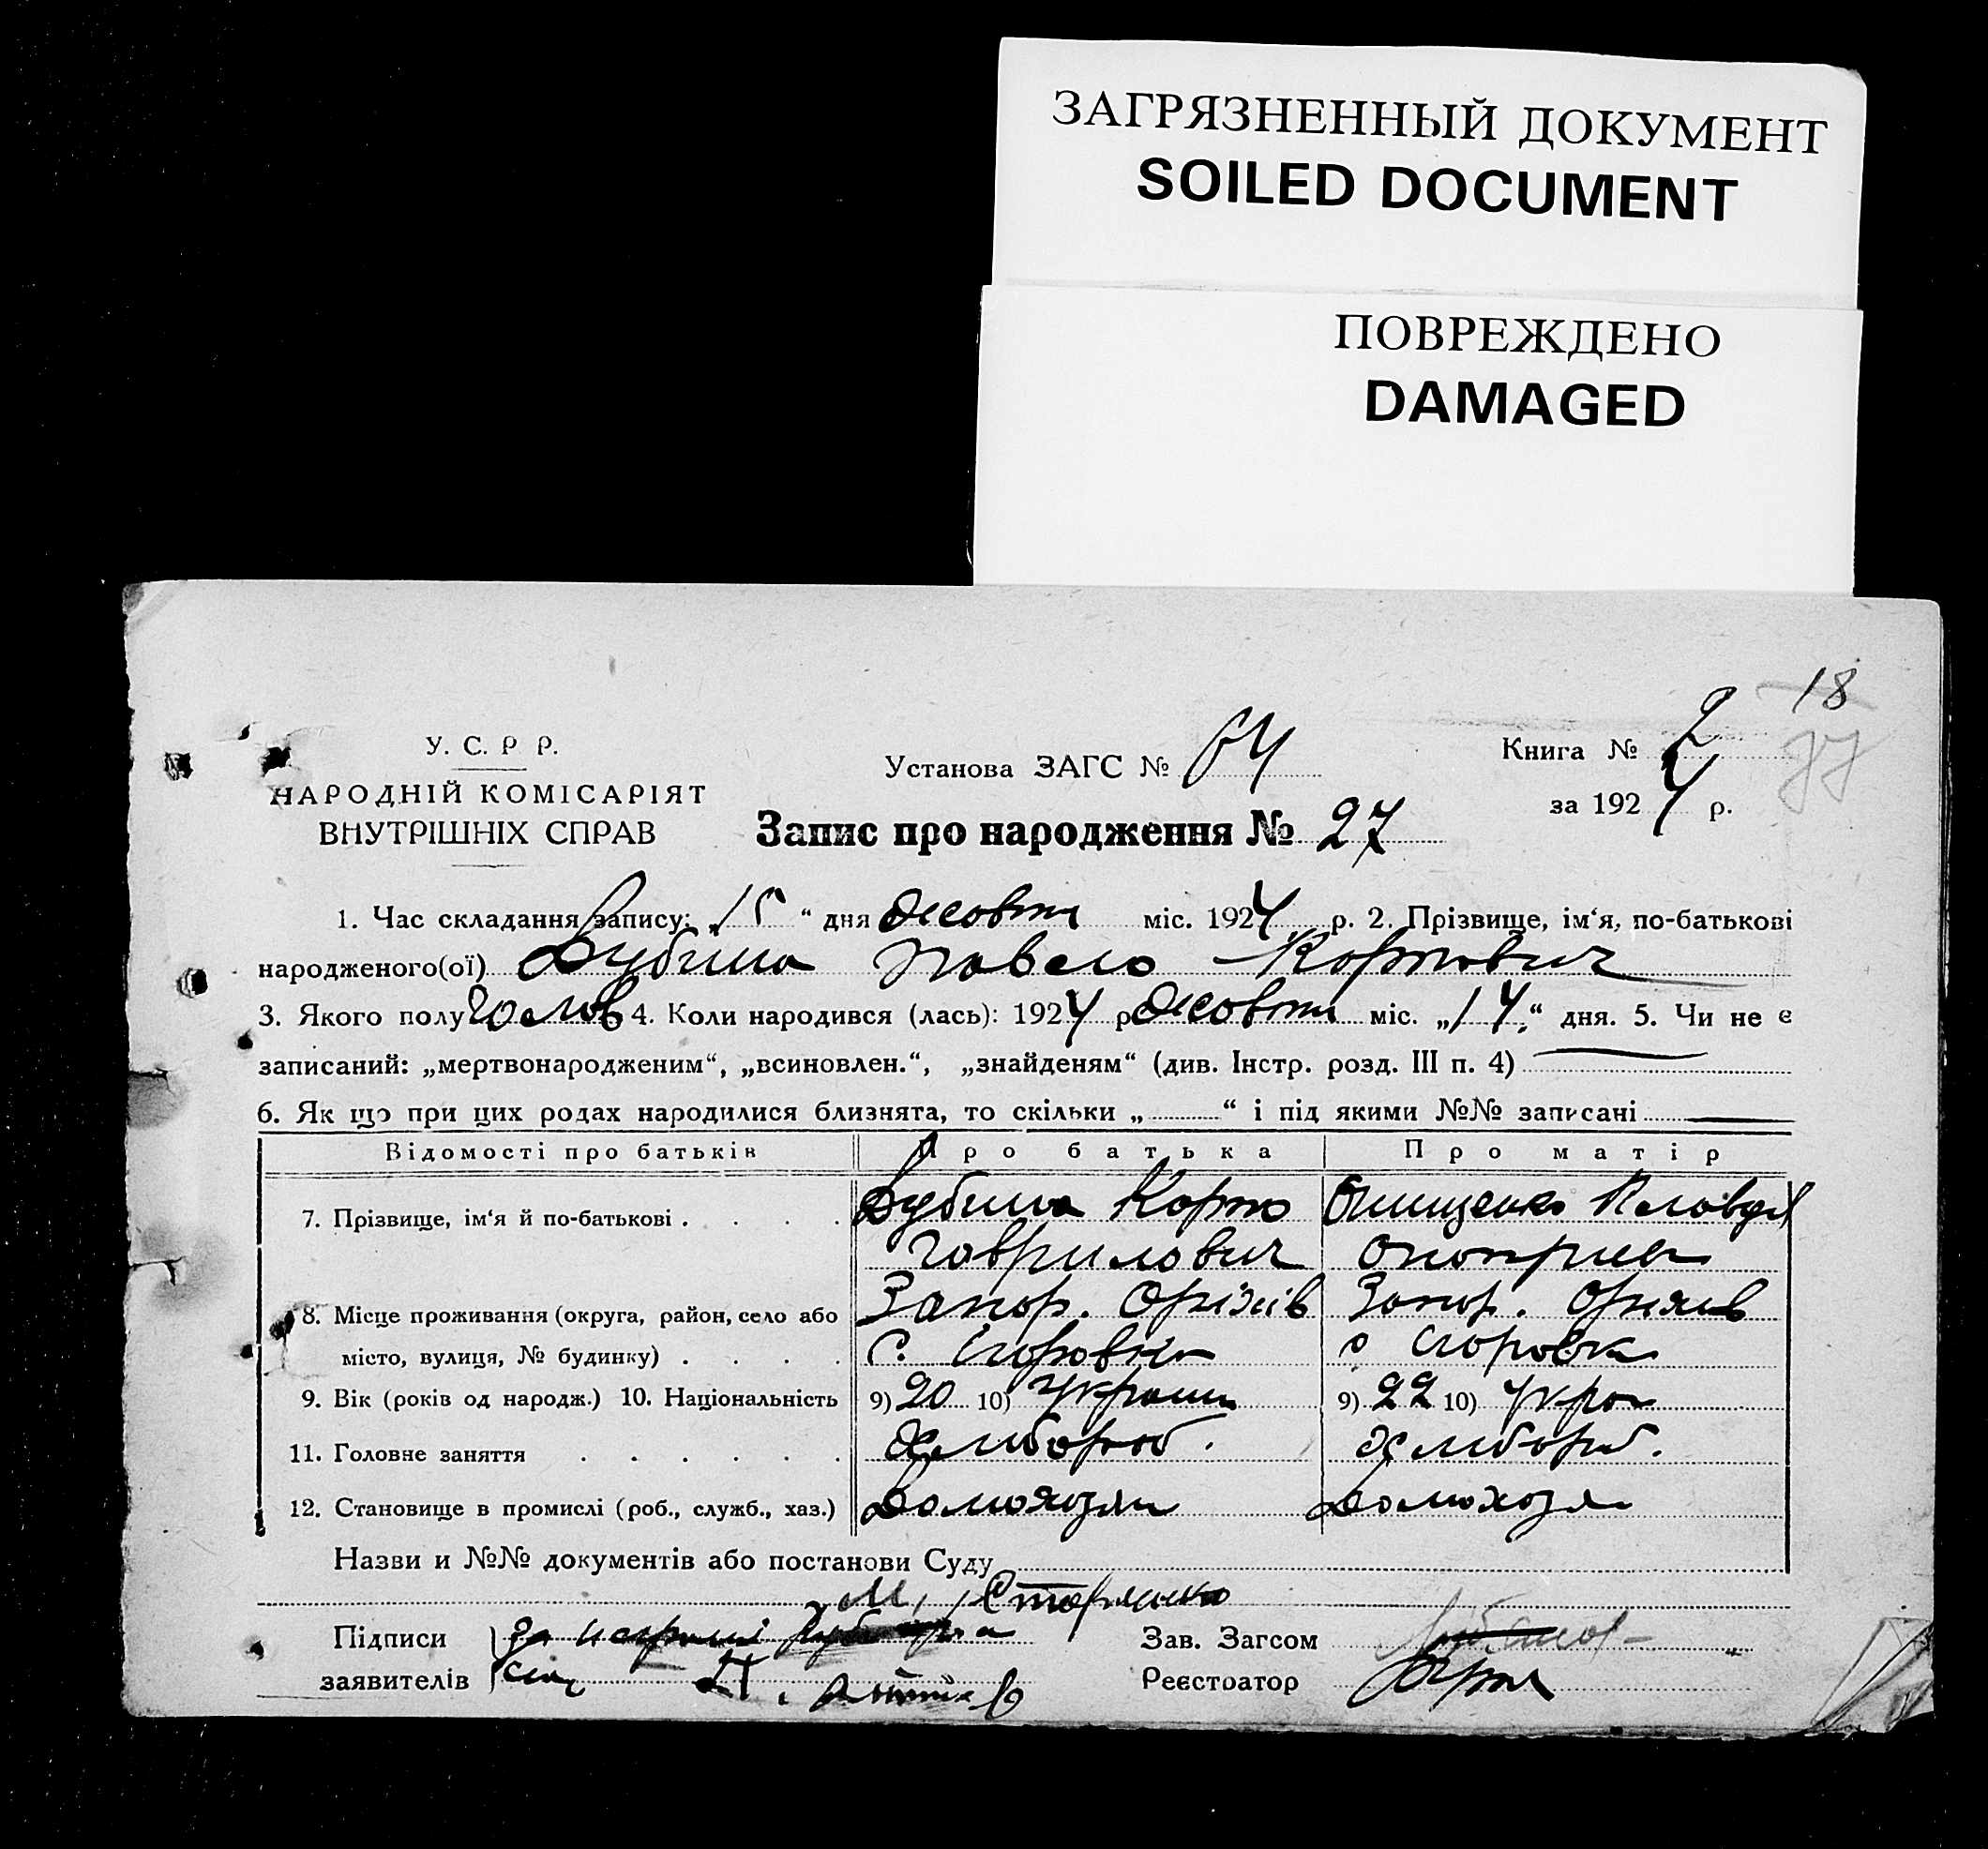 ЗАГРЯЗНЕННЫЙ ДОКУМЕНТ
SOILED DOCUMENT
ПОВРЕЖДЕНО
DAMAGED
18
У. С. Р Р.
НАРОДНІЙ КОМІСАРІЯТ
ВНУТРІШНІХ СПРАВ
Установа ЗАГС № 64
Книга № 2
за 1924 р.
Запис про народження № 27
1. Час складання запису: 15 “ дня жовтня міс. 1924 р. 2. Прізвище, ім‘я, по-батькові
народженого(ої) Дубина Павело Карпович
3. Якого полу чолов 4. Коли народився (лась): 1924 р жовтня міс. „14“ дня. 5. Чи не є
записаний: „мертвонародженим“, „всиновлен.“, „знайденям“ (див. Інстр. розд. III п. 4)
6. Як що при цих родах народилися близнята, то скільки „ “ і під якими №№ записані
Відомості про батьків Про батька Про матір
7. Прізвище, ім‘я й по-батькові . . . . Дубина Карпо Онищенко
Гаврилович
8. Місце проживання (округа, район, село або Запор. Оріхів Запор.
місто, вулиця, № будинку) . . . . с. с
9. Вік (років од народж.) 10. Національність 9) 20 10) Украин 9) 22 10) Укра
11. Головне заняття . . . . . . Хлибороб. Хлибороб.
12. Становище в промислі (роб., служб., хаз.) Домохозяин Домохозя
Назви и №№ документів або постанови Суду
М.
Підписи за Зав. Загсом
заявителів Реєстратор